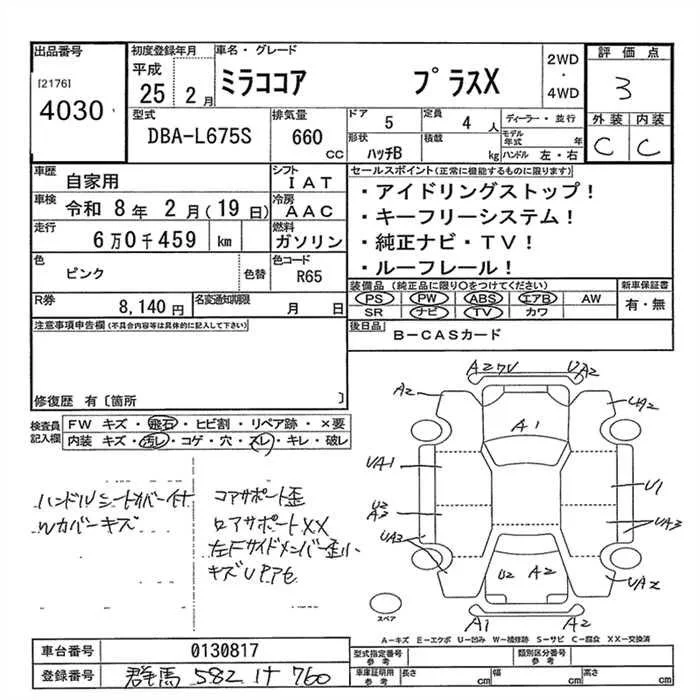 出品番号
[2176]
4030
初度登録年月
平成
25 2 月
車名・グレード
ミラココア プラスX
2WD
・
4WD
評価点
3
外装 内装
C C
型式
DBA-L675S
排気量
660
cc
ドア 5
定員 4 人
形状 ハッチB
積載 kg
ディーラー・並行
モデル年式 年
ハンドル 左・右
車歴 自家用
シフト IAT
車検 令和 8 年 2 月(19 日)
冷房 AAC
走行 6 万 0 千 459 km
燃料 ガソリン
色 ピンク 色替
色コード R65
R券 8,140 円
名変通知期限 月 日
セールスポイント(正常に機能するものに限ります)
・アイドリングストップ!
・キーフリーシステム!
・純正ナビ・TV!
・ルーフレール!
装備品(純正品に限り○をつけてください)
PS PW ABS エアB AW
SR ナビ TV カワ
新車保証書
有・無
後日品 B-CASカード
注意事項申告欄(不具合内容等は具体的に記入して下さい)
修復歴 有〔箇所 〕
検査員記入欄
FW キズ・飛石・ヒビ割・リペア跡・×要
内装 キズ・汚レ・コゲ・穴・スレ・キレ・破レ
ハンドルシートカバー付
Wカバーキズ
コアサポート歪
ロアサポートXX
左Fサイドメンバー歪小
キズUアアセ
A2 UA2
A2 UA2
A1
UA1 U1
U2
A3
UA3 UA3
U2 A2 UA2
A1 A2
スペア
A-キズ E-エクボ U-凹み W-補修跡 S-サビ C-腐食 XX-交換済
車台番号 0130817
登録番号 群馬 582 け 760
型式指定番号
参考
類別区分番号
参考
車庫証明用
参考
長さ cm 幅 cm 高さ cm